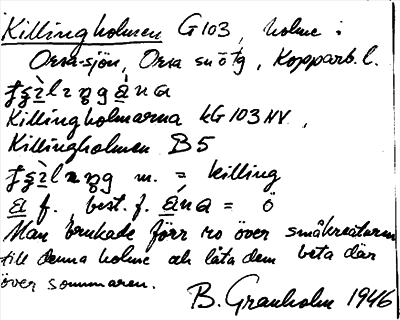 Killingholmen G 103, holme i
Orsa-sjön, Orsa sn ö tg, Kopparb. l.
Killingholmarna kG 103 NV,
Killingholmen B5
m. = killing
f. best. f. = ö
Man brukade förr ro över småkreaturen
till denna holme och låta dem beta där
över sommaren.
B. Granholm 1946